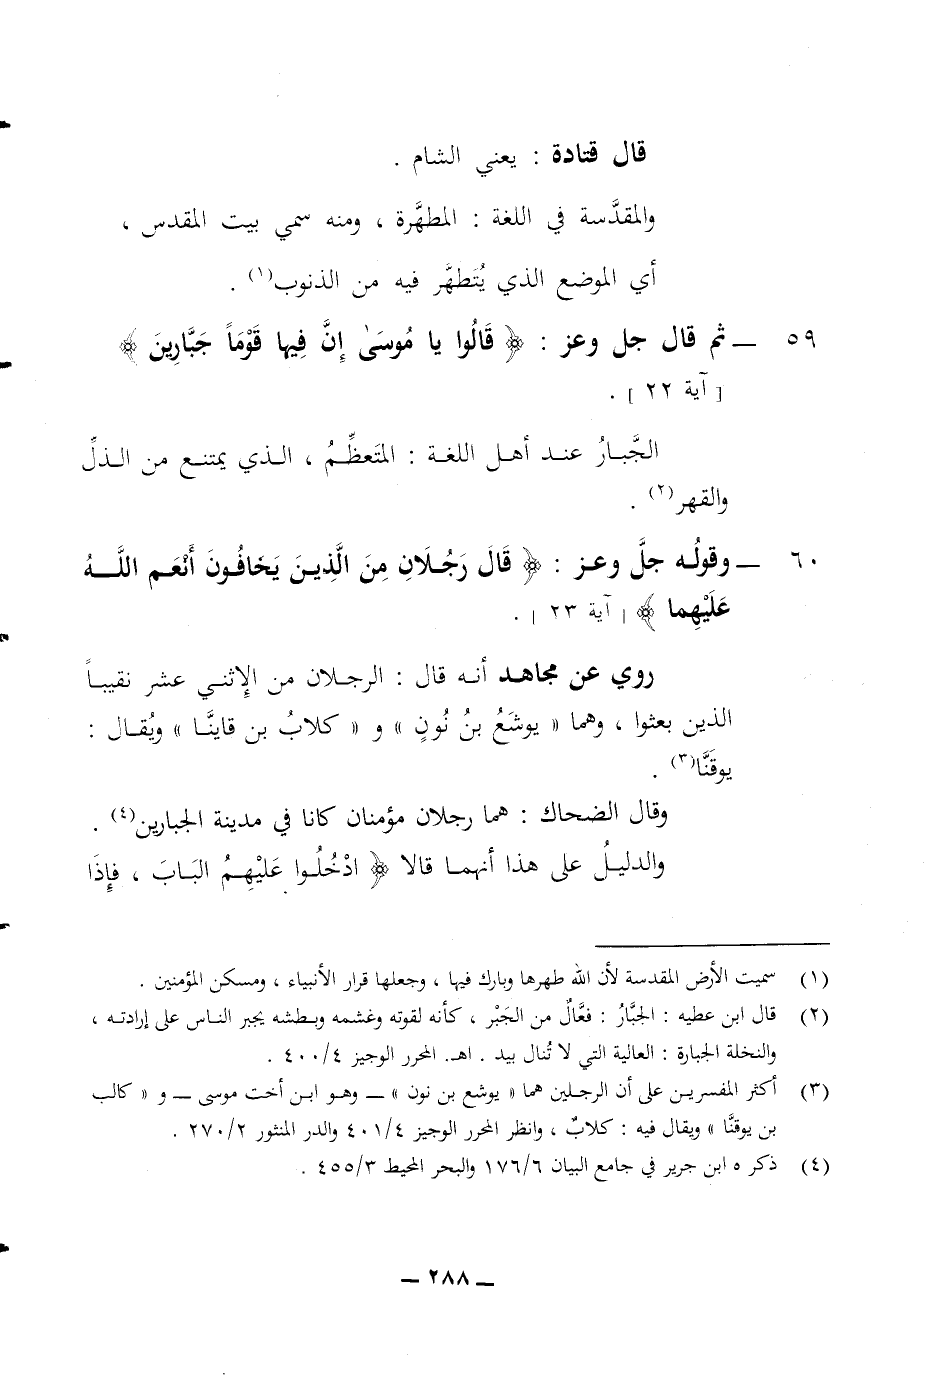 قال قتادة : يعني الشام .
والمقدَّسة في اللغة : المطهَّرة ، ومنه سمي بيت المقدس ،
أي الموضع الذي يُتَطهَّر فيه من الذنوب(١) .
٥٩ ــ ثم قال جل وعز : ﴿ قَالُوا يا مُوسَىٰ إِنَّ فِيها قَوْمَاً جَبَّارِينَ ﴾
[ آية ٢٢ ] .
الجَّبارُ عند أهل اللغة : المتَعظِّمُ ، الذي يمتنع من الذلِّ
والقهر(٢) .
٦٠ ــ وقولُه جلَّ وعز : ﴿ قَالَ رَجُلَانِ مِنَ الَّذِينَ يَخَافُونَ أَنْعَم اللَّهُ
عَلَيْهِما ﴾ [ آية ٢٣ ] .
روي عن مجاهد أنه قال : الرجلان من الإثني عشر نقيباً
الذين بعثوا ، وهما « يوشَعُ بنُ نُونٍ » و « كلابُ بن قاينَّا » ويُقال :
يوقَنَّا(٣) .
وقال الضحاك : هما رجلان مؤمنان كانا في مدينة الجبارين(٤) .
والدليلُ على هذا أنهما قالا ﴿ ادْخُلُوا عَلَيْهِمُ البَابَ ، فإِذَا
(١) سميت الأرض المقدسة لأن الله طهرها وبارك فيها ، وجعلها قرار الأنبياء ، ومسكن المؤمنين .
(٢) قال ابن عطيه : الجبَّارُ : فعَّالٌ من الجَبْر ، كأنه لقوته وغشمه وبطشه يجبر الناس على إرادته ،
والنخلة الجبارة : العالية التي لا تُنال بيد . اهـ. المحرر الوجيز ٤٠٠/٤ .
(٣) أكثر المفسرين على أن الرجلين هما « يوشع بن نون » ــ وهو ابن أخت موسى ــ و « كالب
بن يوقنَّا » ويقال فيه : كلابٌ ، وانظر المحرر الوجيز ٤٠١/٤ والدر المنثور ٢٧٠/٢ .
(٤) ذكر ه ابن جرير في جامع البيان ١٧٦/٦ والبحر المحيط ٤٥٥/٣ .
ــ ٢٨٨ ــ